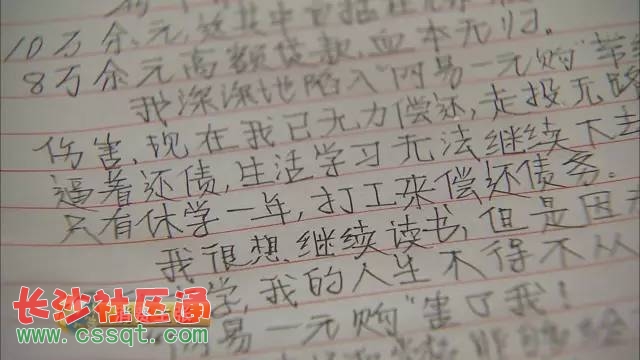 10万余元,这其中包括在
8万余元高额贷款,血本无归。
我深深地陷入"网易一元购"带
伤害,现在我已无力偿还,走投无路
逼着还债,生活学习无法继续下去
只有休学一年,打工来偿还债务。
我很想继续读书,但是因
学,我的人生不得不从
网易一元购"害了我!
长沙社区通
www.cssqt.com